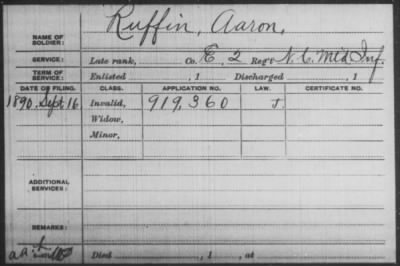 NAME OF SOLDIER: Ruffin, Aaron,
SERVICE: Late rank, Co. E, 2 Reg't N. C. Mtd Inf.
TERM OF SERVICE: Enlisted , 1 Discharged , 1
DATE OF FILING. CLASS. APPLICATION NO. LAW. CERTIFICATE NO.
1890, Sept. 16 Invalid, 919,360 J.
Widow,
Minor,
ADDITIONAL SERVICES:
REMARKS:
Died , 1 , at